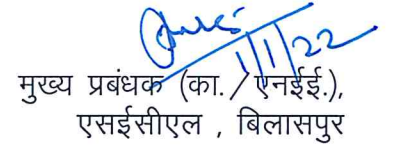 1/1/22
मुख्य प्रबंधक (का./एनईई.),
एसईसीएल , बिलासपुर